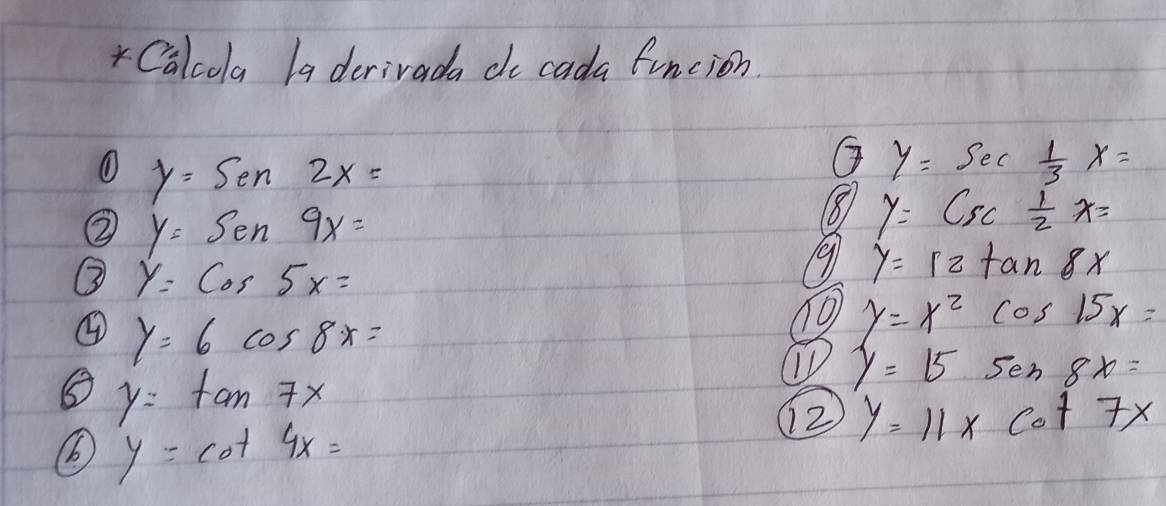 *Cálcula la derivada de cada función.
① y = Sen 2x =
② y = Sen 9x =
③ y = Cos 5x =
④ y = 6 cos 8x =
⑤ y = tan 7x
⑥ y = cot 4x =
⑦ y = Sec 1/3 x =
⑧ y = Csc 1/2 x =
⑨ y = 12 tan 8x
⑩ y = x² cos 15x =
⑪ y = 15 sen 8x =
⑫ y = 11x cot 7x